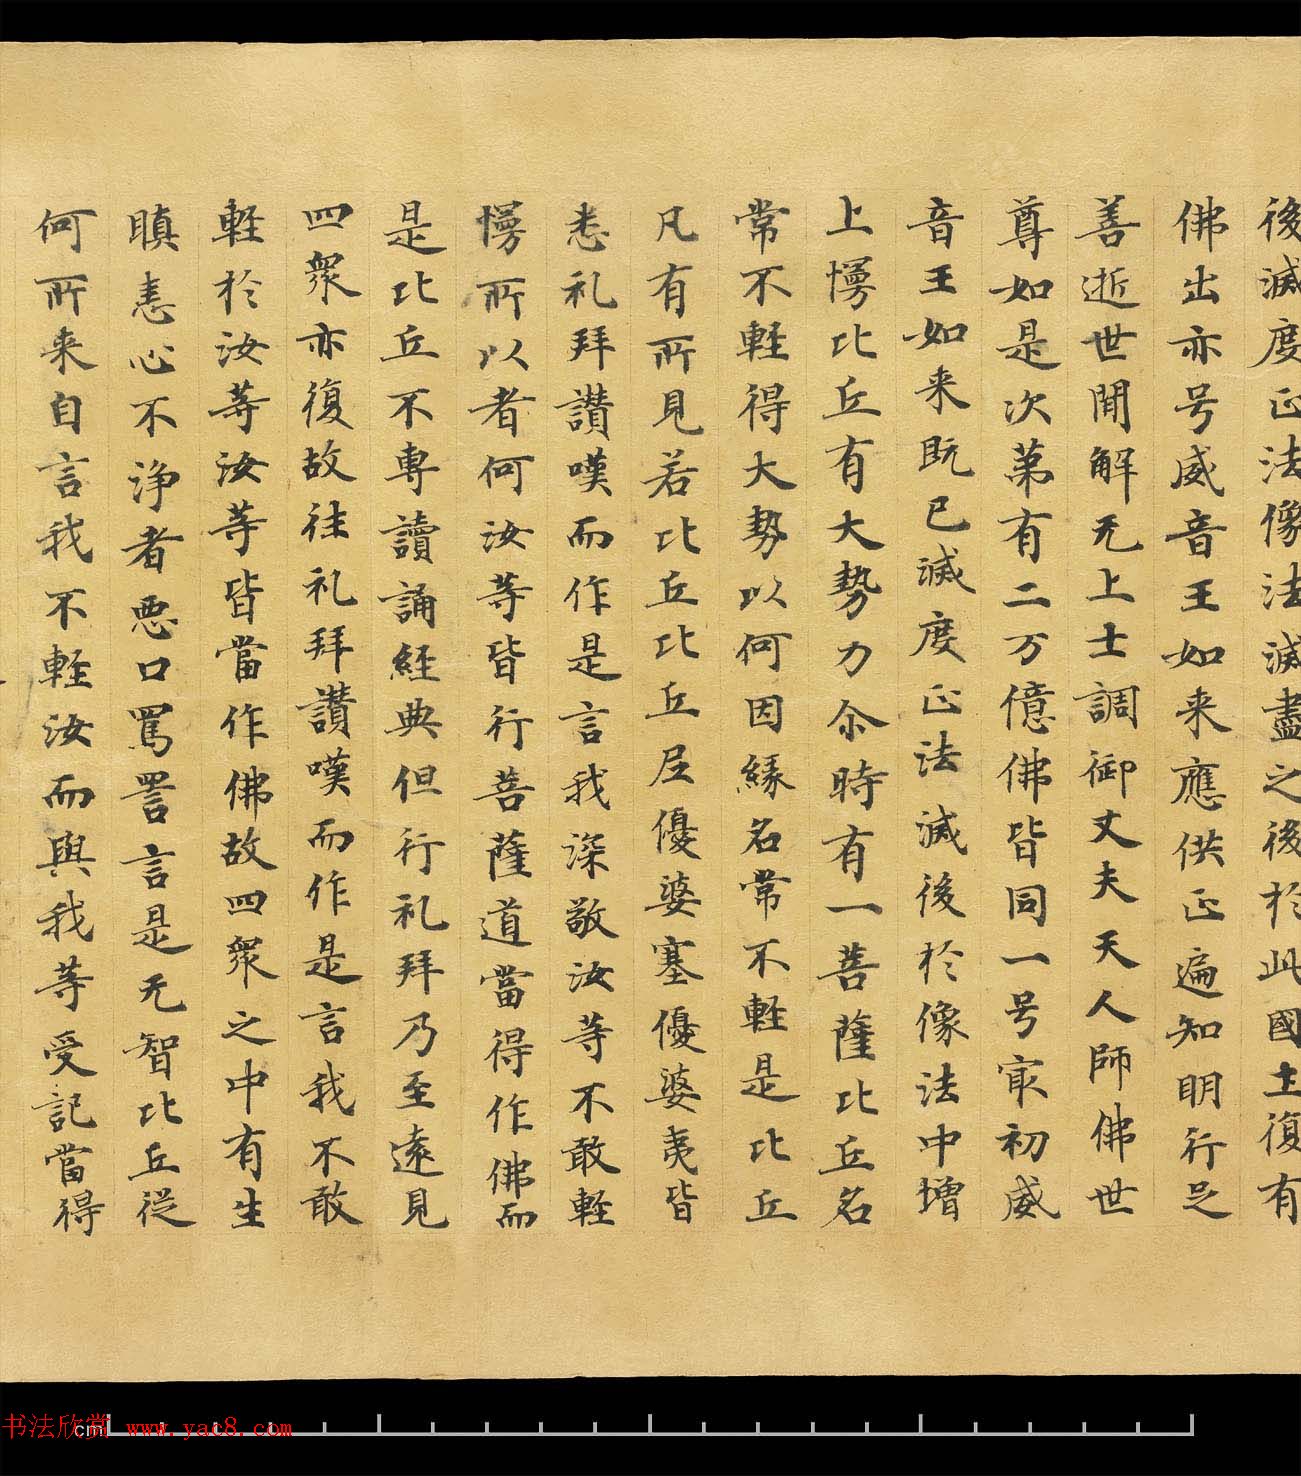 後滅度正法像法滅盡之後於此國土復有
佛出亦号威音王如来應供正遍知明行足
善逝世間解无上士調御丈夫天人師佛世
尊如是次第有二万億佛皆同一号㝡初威
音王如来既已滅度正法滅後於像法中增
上慢比丘有大勢力尒時有一菩薩比丘名
常不軽得大勢以何因緣名常不軽是比丘
凡有所見若比丘比丘尼優婆塞優婆夷皆
悉礼拜讚嘆而作是言我深敬汝等不敢軽
慢所以者何汝等皆行菩薩道當得作佛而
是比丘不專讀誦經典但行礼拜乃至遠見
四衆亦復故往礼拜讚嘆而作是言我不敢
軽於汝等汝等皆當作佛故四衆之中有生
瞋恚心不淨者惡口罵詈言是无智比丘從
何所来自言我不軽汝而與我等受記當得
書法欣赏 www.yac8.com
cm